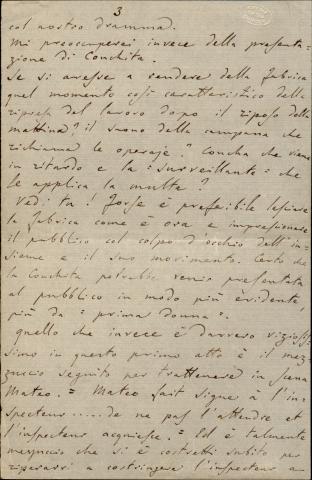 3
col nostro dramma.
Mi preoccuperei invece della presenta=
zione di Conchita.
Se si avesse a rendere della fabrica
quel momento così caratteristico della
ripresa del lavoro dopo il riposo della
mattina? il suono della campana che
richiama le operaje? Concha che viene
in ritardo e la "surveillante" che
le applica la multa?
Vedi tu! Forse è preferibile lasciare
la fabrica come è ora e impressionare
il pubblico col colpo d'occhio dell'in=
sieme e il suo movimento. Certo che
la Conchita potrebbe venir presentata
al pubblico in modo più evidente,
più da "prima donna".
Quello che invece è davvero viziosis=
simo in questo primo atto è il mez=
zuccio seguito per trattenere in scena
Mateo. "Mateo fait signe à l'ins=
pecteur..... de ne pas l'attendre et
l'inspecteur acquiesce." Ed è talmente
mezuccio che si è costretti subito per
ripararvi a costringere l'inspecteur a